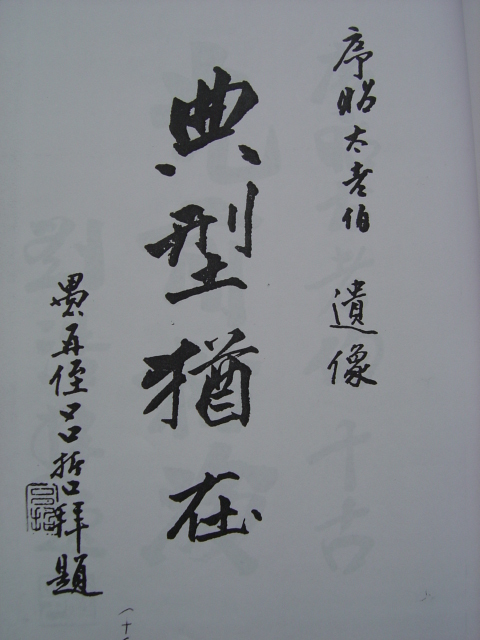 序昭太老伯 遺像
典型猶在
愚再侄呂哲拜題